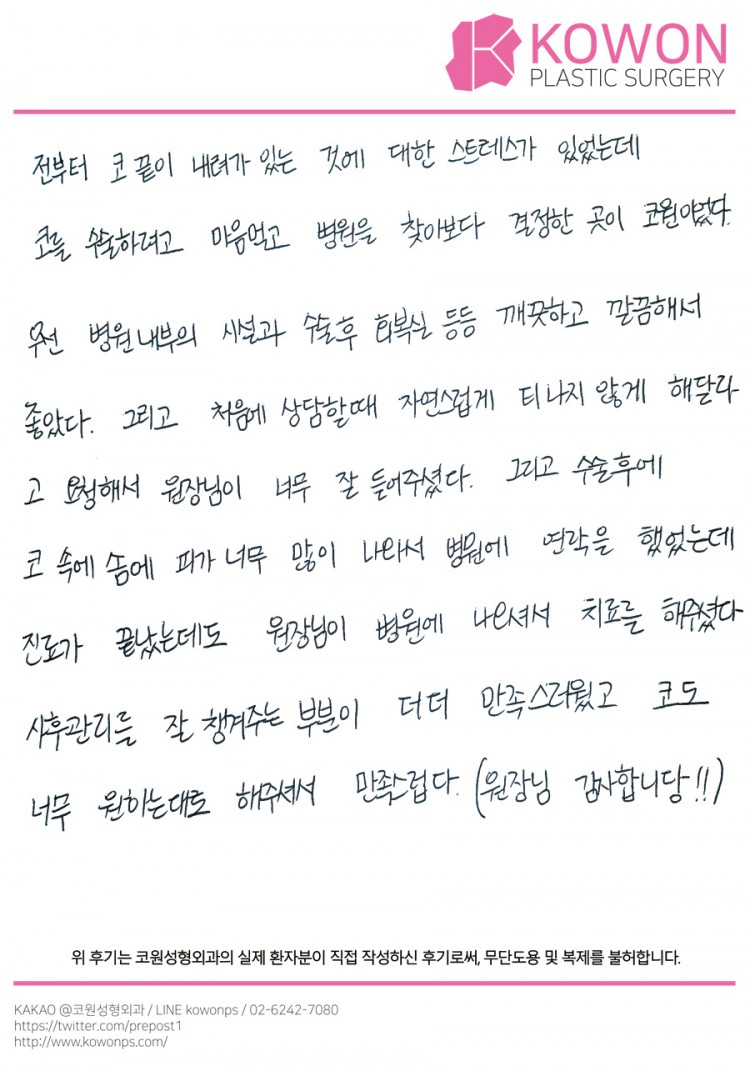 KOWON
PLASTIC SURGERY
전부터 코 끝이 내려가 있는 것에 대한 스트레스가 있었는데
코를 수술하려고 마음먹고 병원을 찾아보다 결정한 곳이 코원이었다.
우선 병원내부의 시설과 수술후 회복실 등등 깨끗하고 깔끔해서
좋았다. 그리고 처음에 상담할때 자연스럽게 티나지 않게 해달라
고 요청해서 원장님이 너무 잘 들어주셨다. 그리고 수술후에
코 속에 솜에 피가 너무 많이 나와서 병원에 연락을 했었는데
진료가 끝났는데도 원장님이 병원에 나오셔서 치료를 해주셨다
사후관리를 잘 챙겨주는 부분이 더더 만족스러웠고 코도
너무 원하는대로 해주셔서 만족스럽다. (원장님 감사합니당!!)
위 후기는 코원성형외과의 실제 환자분이 직접 작성하신 후기로써, 무단도용 및 복제를 불허합니다.
KAKAO @코원성형외과 / LINE kowonps / 02-6242-7080
https://twitter.com/prepost1
http://www.kowonps.com/